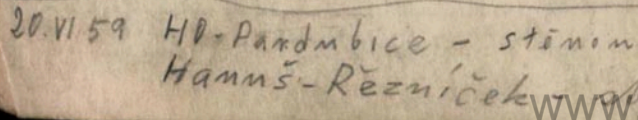 20.VI 59 HO-Pardubice - stěnou
Hanuš-Řezníček -
www